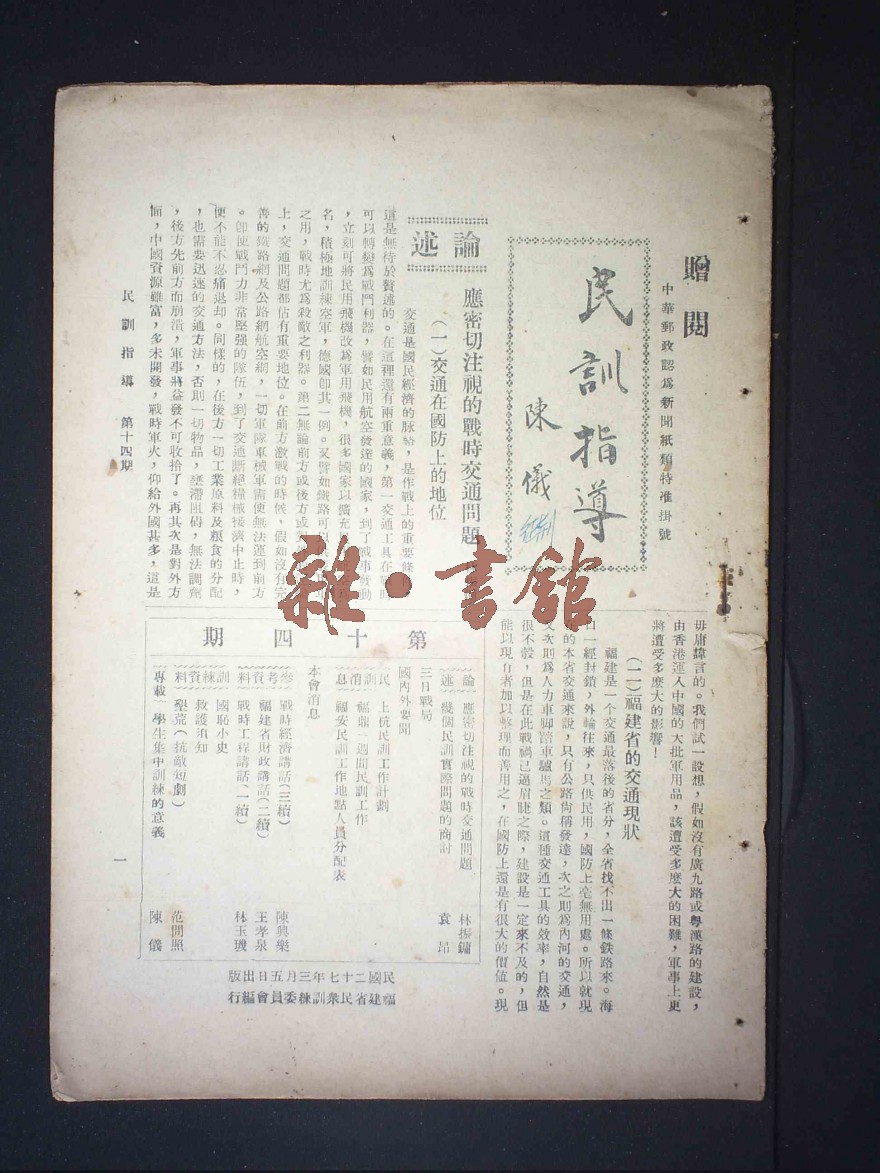 贈閱
中華郵政認為新聞紙類特准掛號
民訓指導
陳儀
論述
應密切注視的戰時交通問題
(一)交通在國防上的地位
交通是國民經濟的脈絡,是作戰上的重要條件
這是無待於贅述的。在這裡還有兩重意義,第一交通工具在戰時
可以轉變爲戰鬥利器,譬如民用航空發達的國家,到了戰事發動
,立刻可將民用飛機改爲軍用飛機,很多國家以擴充
名,積極地訓練空軍,德國卽其一例。又譬如鐵路可以
之用,戰時尤爲殺敵之利器。第二無論前方或後方或對
上,交通問題都佔有重要地位。在前方激戰的時候,假如沒有完
善的鐵路網及公路網航空網,一切軍隊車械軍需便無法運到前方
。卽使戰鬥力非常堅强的隊伍,到了交通斷絕糧械接濟中止時,
便不能不忍痛退却。同樣的,在後方一切工業原料及粮食的分配
,也需要迅速的交通方法,否則一切物品,壅滯阻碍,無法調劑
,後方先前方而崩潰,軍事將益發不可收拾了。再其次是對外方
面,中國資源雖富,多未開發,戰時軍火,仰給外國甚多,這是
毋庸諱言的。我們試一設想,假如沒有廣九路或粵漢路的建設,
由香港運入中國的大批軍用品,該遭受多麼大的困難,軍事上更
將遭受多麼大的影響!
(二)福建省的交通現狀
福建是一個交通最落後的省分,全省找不出一條鉄路來。海
口一經封鎖,外輪往來,只供民用,國防上毫無用處。所以就現
的本省交通來說,只有公路尙稱發達,次之則爲內河的交通,
又次則爲人力車脚踏車驢馬之類。這種交通工具的效率,自然是
很不彀,但是在此戰禍已逼眉睫之際,建設是一定來不及的,但
能以現有者加以整理而善用之,在國防上還是有很大的價值。現
第十四期
論述
應密切注視的戰時交通問題 林振鏞
幾個民訓實際問題的商討 袁昂
三日戰局
國內外要聞
民訓消息
上杭民訓工作計劃
福鼎一週間民訓工作
福安民訓工作地點人員分配表
本會消息
參考資料
戰時經濟講話(三續) 陳興樂
福建省財政講話(二續) 王孝泉
戰時工程講話(一續) 林玉璣
訓練資料
國恥小史
救護須知
墾荒(抗敵短劇) 范問照
專載 學生集中訓練的意義 陳儀
民國二十七年三月五日出版
福建省民衆訓練委員會編行
民訓指導 第十四期
一
雜·書館